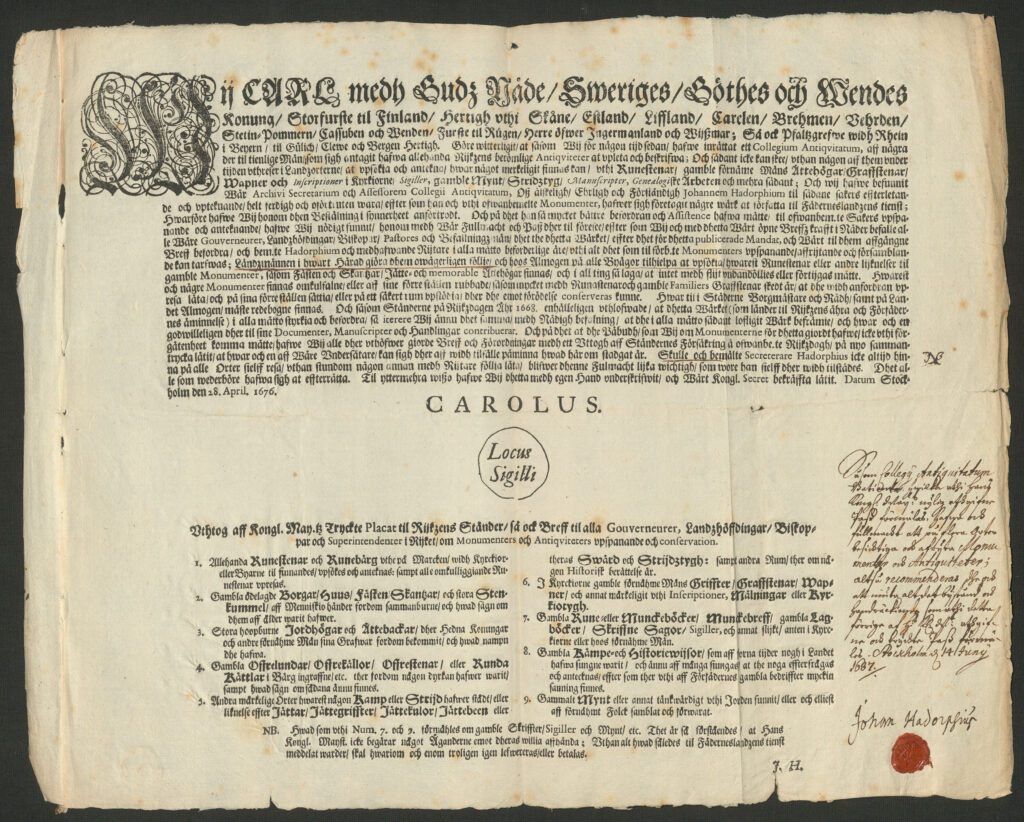 Wij CARL medh Gudz Nåde/ Sweriges/ Göthes och Wendes
Konung/ Storfurste til Finland/ Hertigh vthi Skåne/ Estland/ Liffland/ Carelen/ Brehmen/ Vehrden/
Stetin-Pommern/ Cassuben och Wenden/ Furste til Rügen/ Herre öfwer Ingermanland och Wißmar; Så ock Pfaltzgrefwe widh Rhein
i Beyern/ til Gülich/ Cleve och Bergen Hertigh. Göre witterligit/ at såsom Wij för någon tijd sedan/ hafwe inrättat ett Collegium Antiqvitatum, aff några
der til tienlige Män/ som sigh antagit hafwa allehanda Rijkzens berömlige Antiqviteter at vpleta och beskrifwa; Och sådant icke kan skee/ vthan någon aff them vnder
tijden vthreser i Landzorterne/ at vpsökia och anteckna/ hwar något merkeligit finnas kan/ vthi Runestenar/ gamble förnäme Måns Ättehögar/ Graffstenar/
Wapner och Inscriptioner i Kyrkiorne/ Sigiller, gamble Mynt/ Stridztyg/ Manuscripter, Genealogiske Arbeten och mehra sådant; Och wij hafwe befunnit
Wår Archivi Secretarium och Assessorem Collegii Antiqvitatum, Oß älskeligh/ Ehrligh och Förståndigh Johannem Hadorphium til sådane sakers effterletan-
de och vptecknande/ helt ferdigh och oförtruten wara/ efter som han och vthi ofwanbemelte Monumenter, hafwer sigh företagit någre wärk at författa til Fäderneslandzens tienst;
Hwarföre hafwe Wij honom dhen Beställning i synnerheet anförtrodt. Och på dhet han så mycket bättre befordran och Assistence hafwa måtte/ til ofwanbem.te Sakers vpspa-
nande och antecknande/ hafwe Wij nödigt funnit/ honom medh Wår Fullmacht och Paß dher til försee/ efter som Wij och med dhetta Wårt öpne Breff krafft i Nåder befalle al-
le Wåre Gouverneurer, Landzhöfdingar/ Biskopar/ Pastores och Befallningzmän/ dhet the dhetta Wärket/ effter dhet för dhetta publicerade Mandat, och Wårt til dhem affgångne
Breff befordra/ och bem.te Hadorphium och medhafwande Ritare i alla måtto beforderlige äre/ vthi alt dhet som til förb.te Monumenters vpspanande/ affritande och församblan-
de kan tarfwas; Ländzmännen i hwart Härad giöra dhem oweigerligen föllie/ och hoos Almogen på alle Böijgar tilhielpa at vpsökia/ hwarest Runestenar eller andre lijknelser til
gamble Monumenter, såsom Fästen och Skantzar/ Jätte- och memorable Ättehögar finnas/ och i all ting så laga/ at intet med flijt vndandöllies eller förtijgas måtte. Hwarest
och någre Monumenter finnas omkulfalne/ eller aff sine förre ställen rubbade/ såsom mycket medh Runastenar och gamble Familiers Graffstenar skedt är/ at the widh anfordran vp-
resa låta/ och på sina förre ställen sättia/ eller på ett säkert rum vpstödia/ dher dhe emot förödelse conserveras kunne. Hwar til i Städerne Borgmästare och Rådh/ samt på Lan-
det Almogen/ måste redebogne finnas. Och såsom Ständerne på Rijkzdagen Åhr 1668. enhälleligen vthlofwade/ at dhetta Wärket/ som länder til Rijkzens ähra och Förfäder-
nes åminnelse/ i alla måtto styrkia och befordra/ så iterere Wij ännu dhet samma/ medh Nådigh befallning/ at dhe i alla måtto sådant lofligit Wärk befrämie/ och hwar och en
godwilleligen dher til sine Documenter, Manuscripter och Handlingar contribuerar. Och på dhet at dhe Påbudh/ som Wij om Monumenterne för dhetta giordt hafwe/ icke vthi för-
gätenheet komma måtte/ hafwe Wij alle dher vthöfwer giorde Breff och Förordningar medh ett Vthogh aff Ständernes Försäkring å ofwanbe.te Rijkzdagh/ på nyo samman-
trycka låtit/ at hwar och en aff Wåre Vndersåtare/ kan sigh dher aff widh tilfälle påminna hwad här om stadgat är. Skulle och bemälte Secreterare Hadorphius icke altijd hin-
na på alle Orter sielff resa/ vthan stundom någon annan medh Rittare föllia låta/ blifwer dhenne Fulmacht lijka wichtigh/ som wore han sielff dher widh tilstädes. Dhet al-
le som wederböre hafwa sigh at effterrätta. Til yttermehra wißo hafwe Wij dhetta medh egen Hand vnderskrifwit/ och Wårt Kongl. Secret bekräffta låtit. Datum Stock-
holm den 28. April. 1676.
NB
CAROLUS.
Locus
Sigilli
Vthtog aff Kongl. May.tz Tryckte Placat til Rijkzens Ständer/ så ock Breff til alla Gouverneurer, Landzhöffdingar/ Biskop-
par och Superintendenter i Rijket/ om Monumenters och Antiqviteters vpspanande och conservation.
1. Allehanda Runestenar och Runebärg vthe på Marcken/ widh Kyrkior-
eller Byarne til finnandes/ vpsökes och antecknas: sampt alle omkulliggiande Ru-
nestenar vpresas.
2. Gambla ödelagde Borgar/ Huus/ Fästen Skantzar/ och stora Sten-
kummel/ aff Menniskio händer fordom sammanburne/ och hwad sägn om
dhem aff ålder warit hafwer.
3. Stora hoopburne Jordhögar och Ättebackar/ dher Hedna Konungar
och andre förnähme Män sina Grafwar fordom bekommit/ och hwad nampn
dhe hafwa.
4. Gambla Offrelundar/ Offrekällor/ Offrestenar/ eller Runda
Kättlar i Bärg ingraffne/ etc. ther fordom någen dyrkan hafwer warit/
sampt hwad sägn om sådana ännu finnes.
5. Andra märkelige Orter hwarest någon Kamp eller Strijd hafwer städt/ eller
liknelse effter Jättar/ Jättegriffter/ Jättekulor/ Jättebeen eller
theras Swärd och Strijdztygh: sampt andra Rum/ ther om nå-
gen Historisk berättelse är.
6. I Kyrckiorne gamble förnähme Måns Griffter/ Graffstenar/ Wap-
ner/ och annat märkeligit vthi Inscriptioner, Målningar eller Kyr-
kiotygh.
7. Gambla Rune eller Munckeböcker/ Munckebreff/ gambla Lag-
böcker/ Skriffne Sagor/ Sigiller, och annat slijkt/ anten i Kyr-
kiorne eller hoos förnähme Män.
8. Gambla Kämpe- och Historiewijsor/ som aff ferna tijder nogh i Landet
hafwa sungne warit/ och ännu aff många siungas/ at the noga efterfrågas
och antecknas/ effter som ther vthi aff Förfädernes gambla bedriffter myckin
sanning finnes.
9. Gammalt Mynt eller annat tänkwärdigt vthi Jorden funnit/ och eliest
aff förnähmt Folck samblat och förwarat.
NB. Hwad som vthi Num. 7. och 9. förmähles om gamble Skriffter/ Sigiller och Mynt/ etc. Thet är så förståendes/ at Hans
Kongl. Mayst. icke begärar något Äganderne emot dheras willia affhända; Vthan alt hwad således til Fäderneslandzens tienst
meddelat warder/ skal hwariom och enom troligen igen lefwereras/ eller betalas.
J. H.
Såsom Collegij Antiquitatum
Monu-
menter och Antiquiteter;
altså recommenderas
Stockholm d. 14 Juny
1687.
Johan Hadorphius